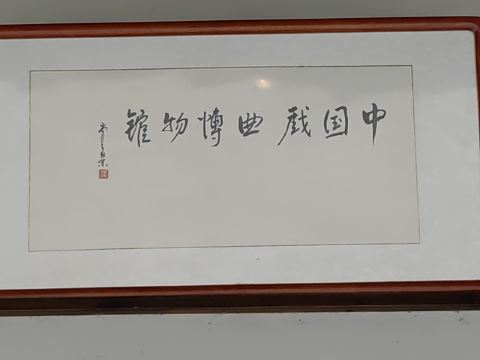 中国戏曲博物馆